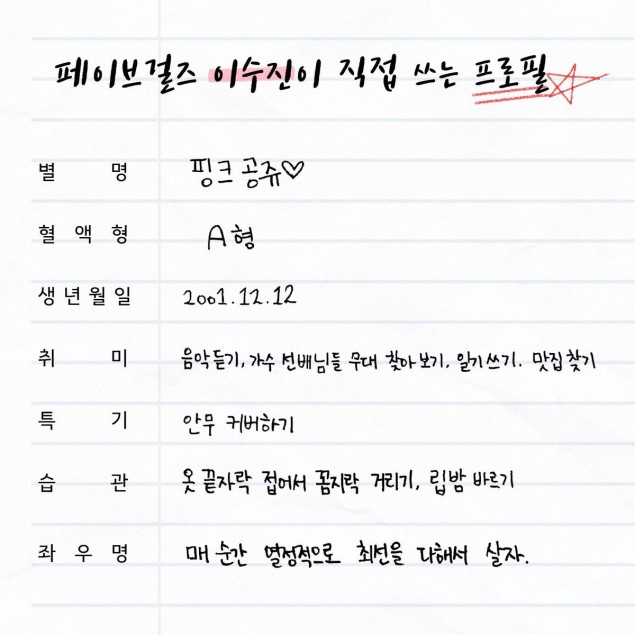 페이브걸즈 이수진이 직접 쓰는 프로필
별 명 핑크공쥬♡
혈 액 형 A형
생 년 월 일 2001.12.12
취 미 음악듣기, 가수 선배님들 무대 찾아보기, 일기쓰기. 맛집찾기
특 기 안무 커버하기
습 관 옷 끝자락 접어서 꼼지락 거리기, 립밤 바르기
좌 우 명 매 순간 열정적으로 최선을 다해서 살자.